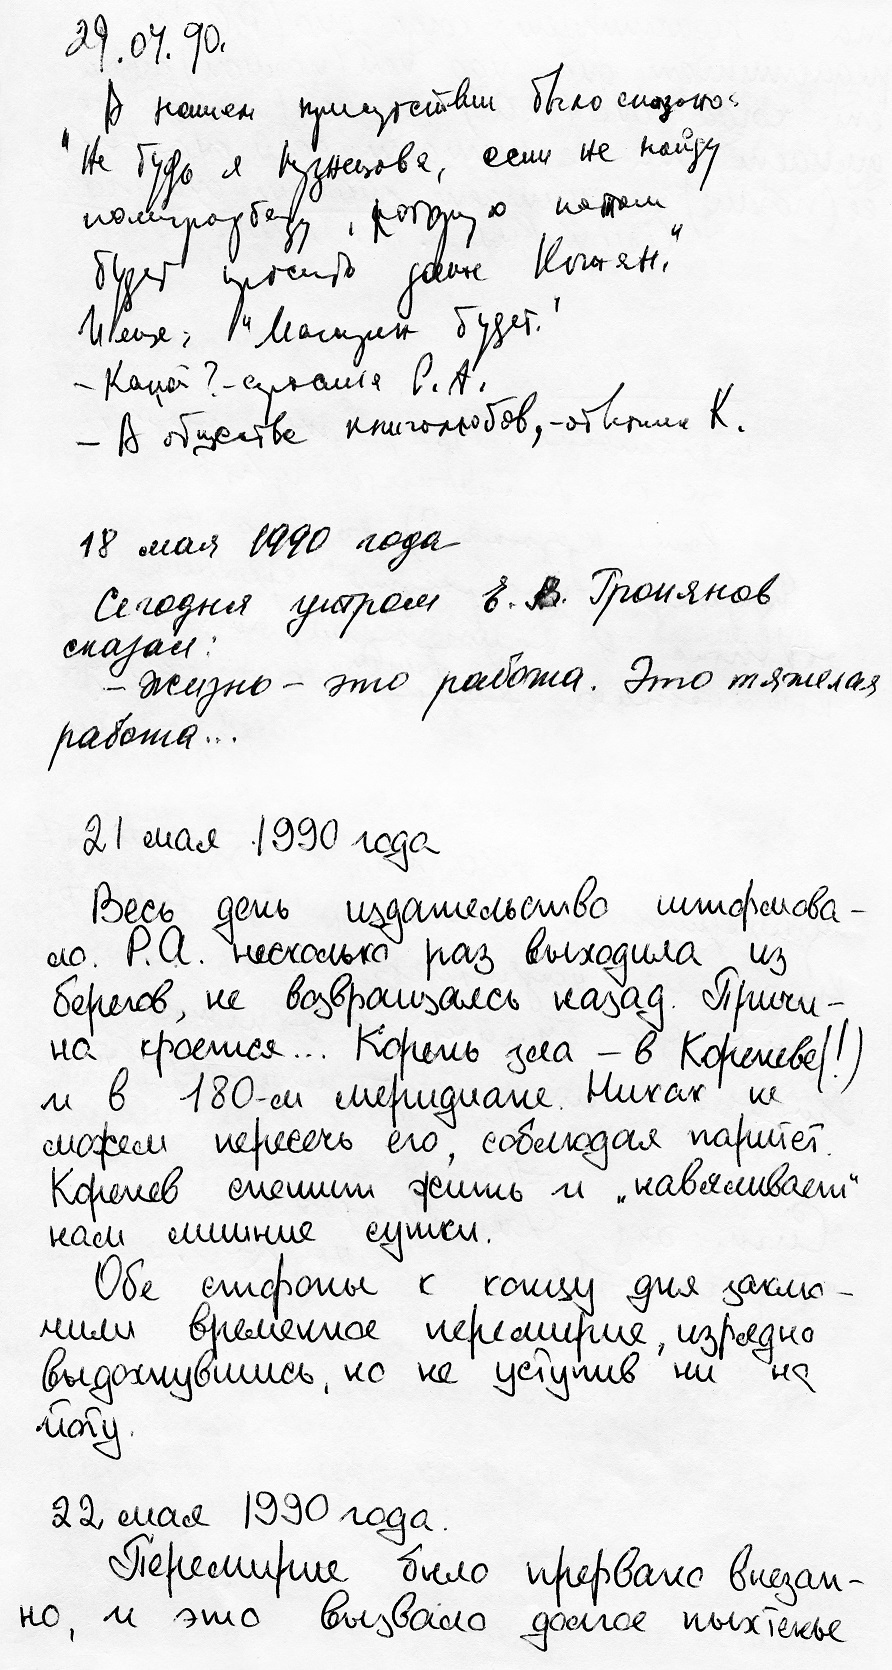 29.04.90.
В нашем присутствии было сказано:
"Не будь я Кузнецова, если не найду
полиграфбазу, которую потом
будет просить даже Кошян."
И еще: "Магазин будет."
– Какой? – спросила Р. А.
– В обществе книголюбов, – ответила К.
18 мая 1990 года
Сегодня утром Е. В. Троянов
сказал:
– Жизнь – это работа. Это тяжелая
работа...
21 мая 1990 года
Весь день издательство штормова-
ло. Р.А. несколько раз выходила из
берегов, не возвращаясь назад. Причи-
на кроется... Корень зла – в Кореневе(!)
и в 180-м меридиане. Никак не
можем пересечь его, соблюдая паритет.
Коренев спешит жить и „навяливает"
нам лишние сутки.
Обе стороны к концу дня заклю-
чили временное перемирие, изрядно
выдохнувшись, но не уступив ни на
йоту.
22 мая 1990 года.
Перемирие было прервано внезап-
но, и это вызвало долгое пыхтенье